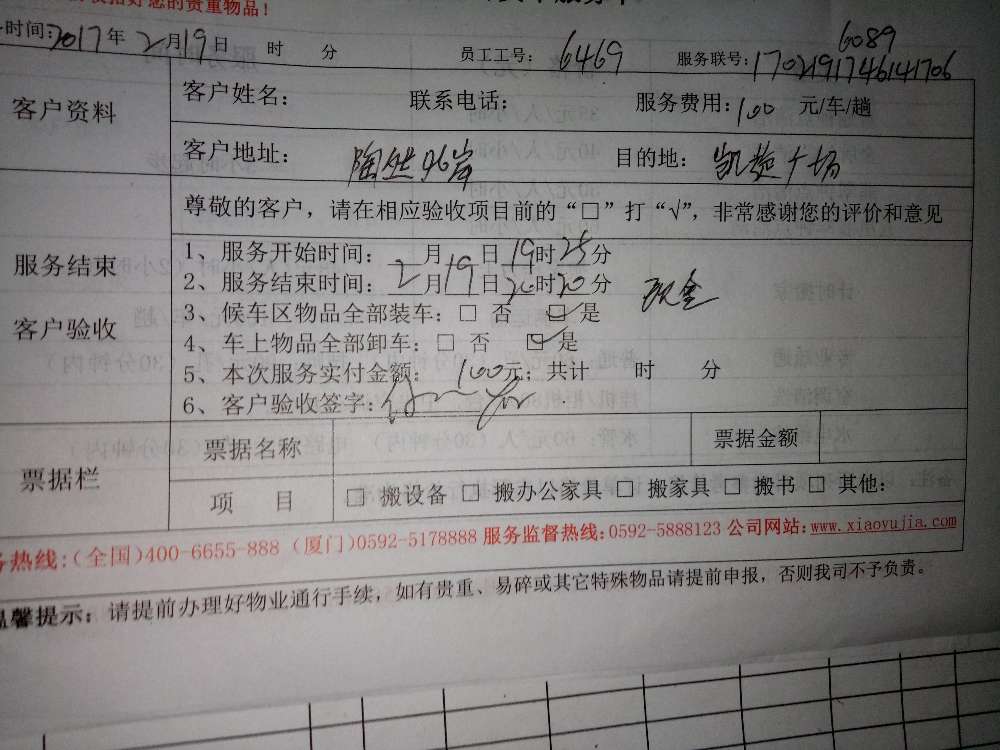 好您的贵重物品！
时间：2017年 2月19日 时 分 员工工号：6469 服务联号：1702191746141706
6089
客户资料
客户姓名： 联系电话： 服务费用：100 元/车/趟
客户地址：陶然96岸 目的地：凯旋广场
尊敬的客户，请在相应验收项目前的“□”打“√”，非常感谢您的评价和意见
服务结束
客户验收
1、服务开始时间： 月 日19时25分
2、服务结束时间：2月19日20时20分
现金
3、候车区物品全部装车：□ 否 ☑ 是
4、车上物品全部卸车：□ 否 ☑ 是
5、本次服务实付金额： 100元；共计 时 分
6、客户验收签字：
票据栏
票据名称 票据金额
项 目 □ 搬设备 □ 搬办公家具 □ 搬家具 □ 搬书 □ 其他：
务热线：(全国)400-6655-888 (厦门)0592-5178888 服务监督热线：0592-5888123 公司网站：www.xiaoyujia.com
温馨提示：请提前办理好物业通行手续，如有贵重、易碎或其它特殊物品请提前申报，否则我司不予负责。